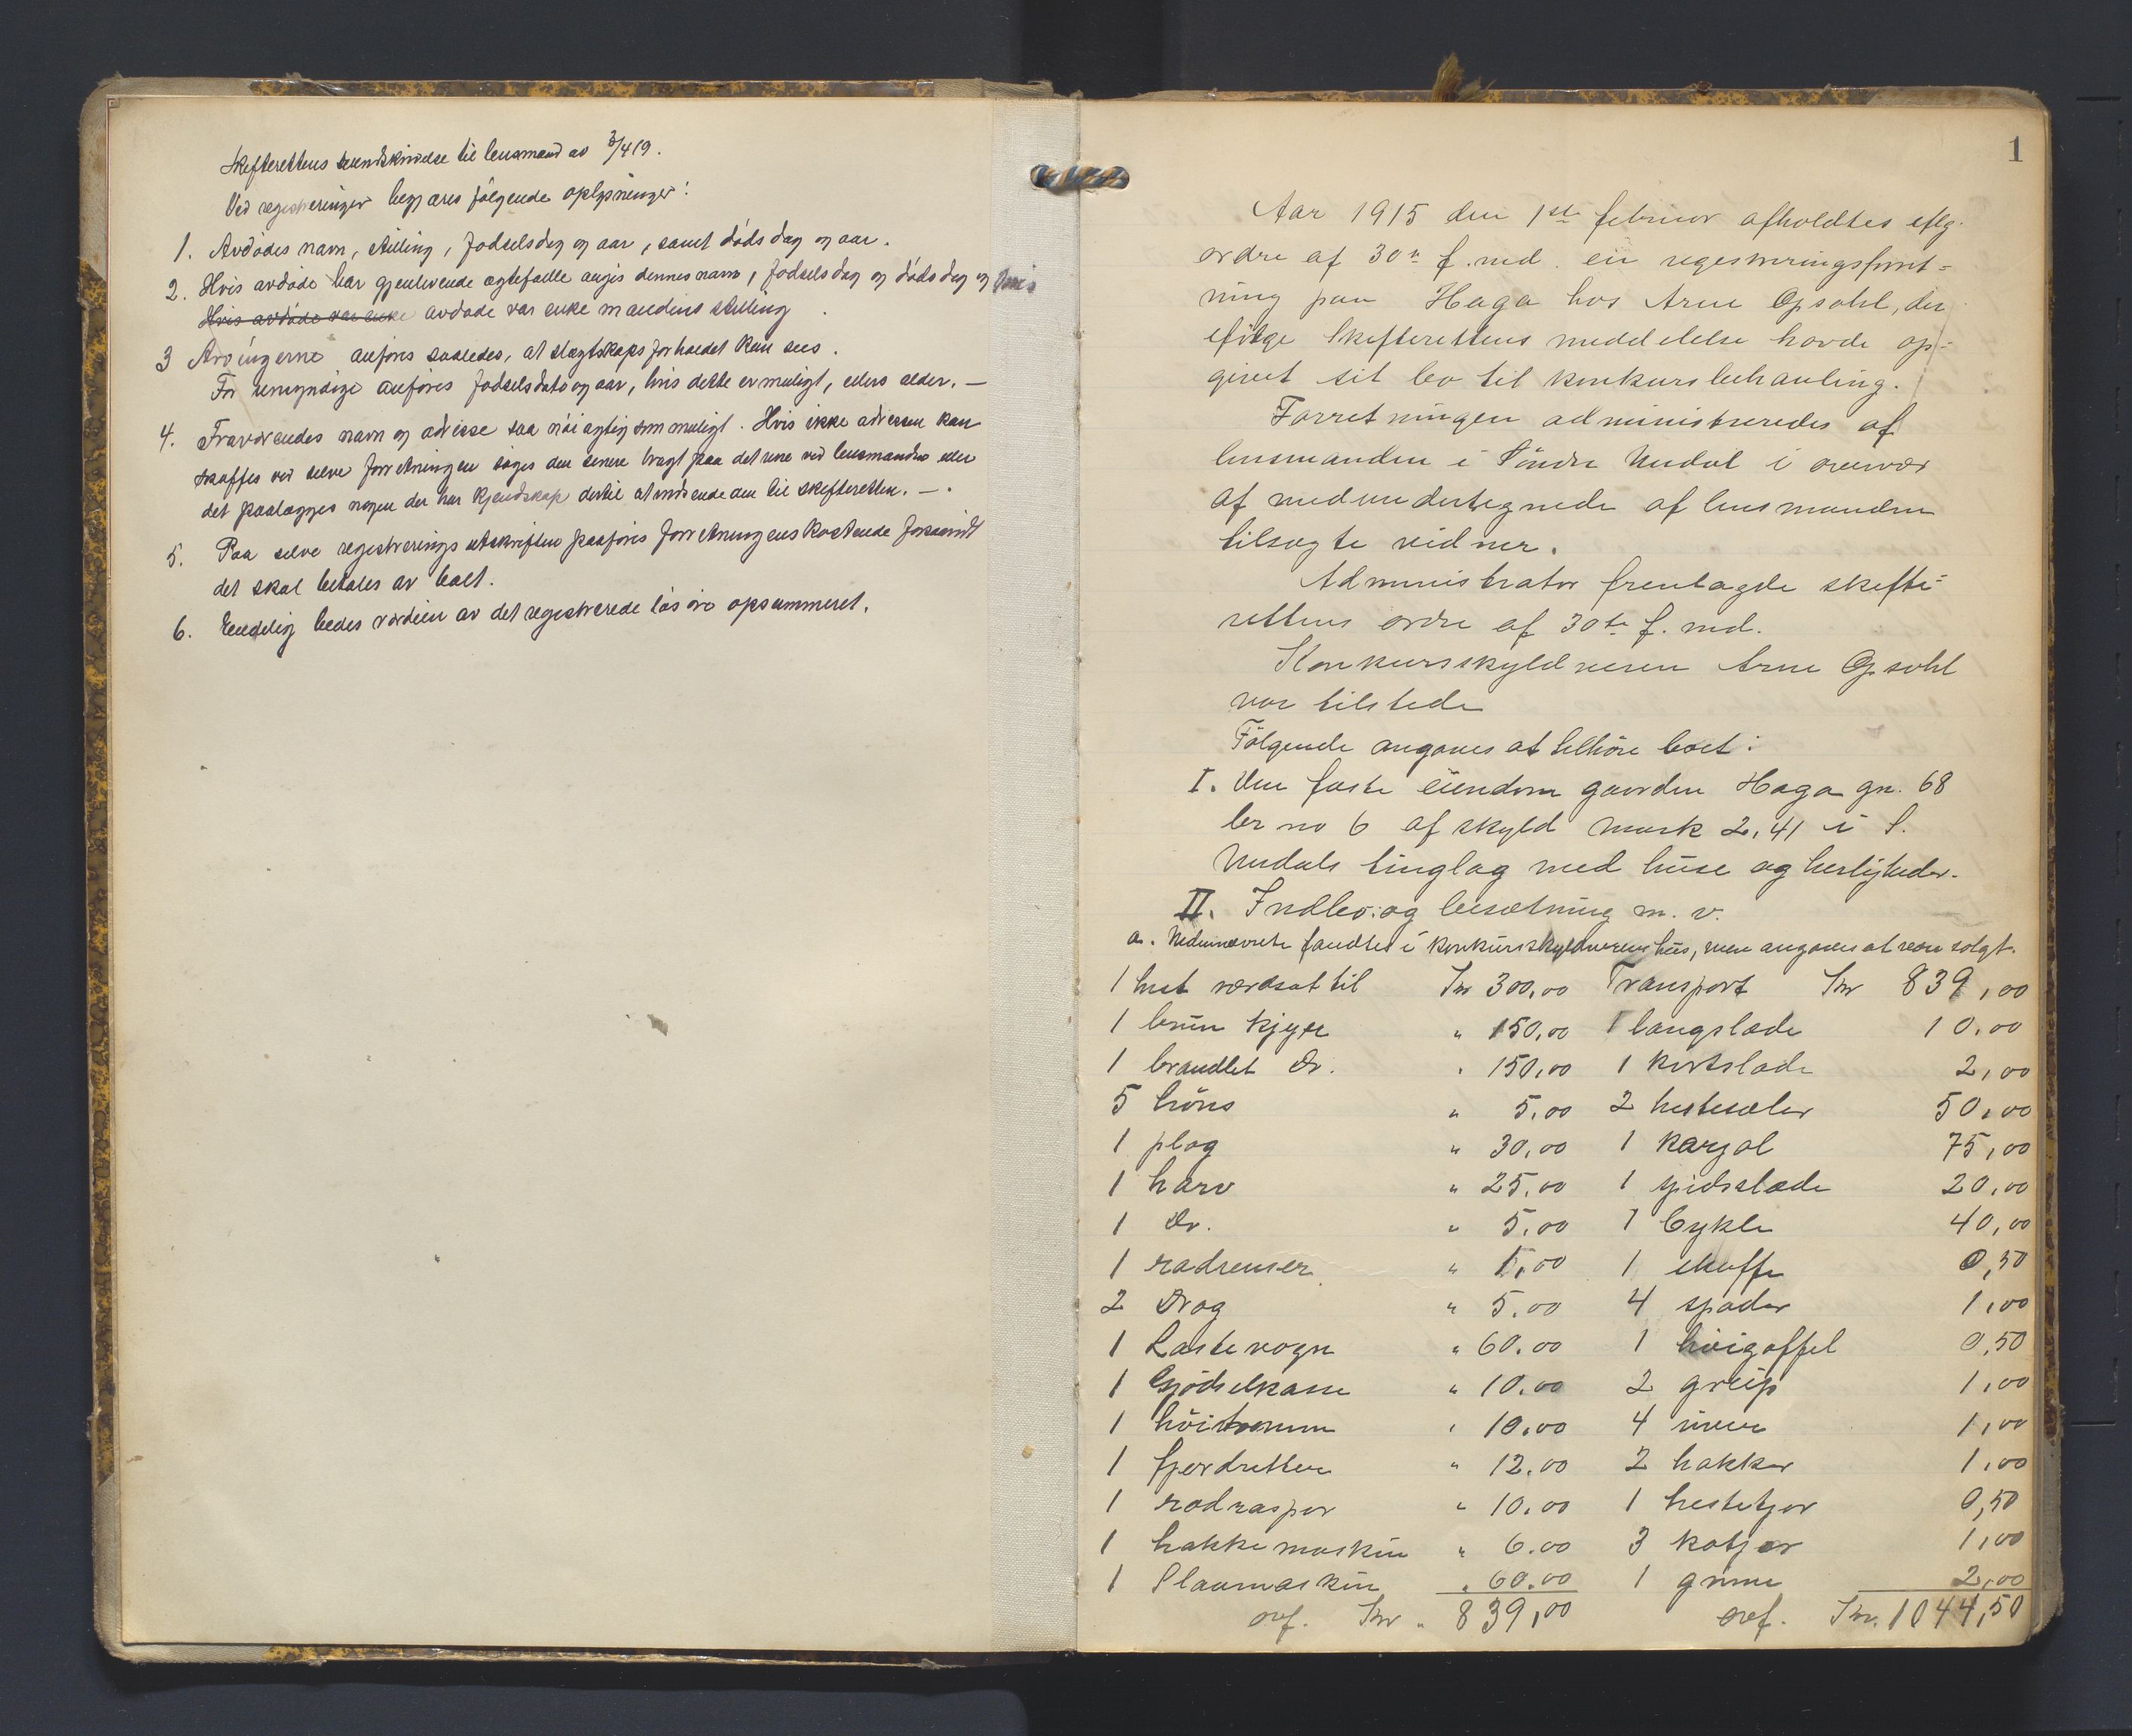 Skifterettens rundskrivelse til lensmænd av 3/4 19.
Ved registreringer begjæres følgende oplysninger:
1. Avdødes navn, stilling, fødselsdag og aar, samt dødsdag og aar.
2. Hvis avdøde har gjenlevende ægtefælle angis dennes navn, fødselsdag og dødsdag og hvis
Hvis avdøde var enke avdøde var enke mandens stilling
3 Arvingerne anføres saaledes, at slægtskapsforholdet kan sees.
For umyndige anføres fødselsdato og aar, hvis dette er muligt, ellers alder. —
4. Fraværendes navn og adresse saa nøiagtig som muligt. Hvis ikke adressen kan
skaffes ved selve forretningen søges den senere bragt paa det rene ved lensmanden eller
det paalægges nogen der har kjendskap dertil at indsende den til skifteretten. —.
5. Paa selve registreringsutskriften paaføres forretningens kostende forsaavidt
det skal betales av boet.
6. Endelig bedes værdien av det registrerede løsøre opsummeret.
1
Aar 1915 den 1ste februar afholdtes eflg.
ordre af 30te f. md. en registreringsforret-
ning paa Haga hos Arne Opsahl, der
ifølge skifterettens meddelelse havde op-
givet sit bo til konkursbehanling.
Forretningen administreredes af
lensmanden i Søndre Undal i overvær
af medundertegnede af lensmanden
tilsagte vidner.
Administrator fremlagde skifte-
rettens ordre af 30te f. md.
Konkursskyldneren Arne Opsahl
var tilstede
Følgende angaves at tilhøre boet:
I. Den faste eiendom gaarden Haga gn. 68
br no 6 af skyld mark 2,41 i S.
Undals tinglag med huse og herligheder.
II. Indbo: og besætning m. v.
a. Nedennævnte fandtes i konkursskyldnerens hus, men angaves at være solgt.
1 hest værdsat til Kr 300,00 Transport Kr 839,00
1 brun kjyr " 150,00 1 langslæde 10.00
1 brandlet Do. " 150,00 1 kortslæde 2,00
5 høns " 5,00 2 hesteseler 50,00
1 plog " 30,00 1 karjol 75,00
1 harv " 25,00 1 spidsslæde 20,00
1 Do. " 5,00 1 Cykle 40,00
1 radrenser " 1,00 1 skuffe 0,50
2 Drag " 5.00 4 spader 1,00
1 Lastevogn " 60.00 1 høigaffel 0,50
1 Gjødselkasse " 10.00 2 greip 1,00
1 " 10,00 4 1,00
1 " 12.00 2 hakker 1,00
1 " 10.00 1 hestetjor 0,50
1 hakkemaskin " 6.00 3 kotjor 1,00
1 Slaamaskin " 60.00 1 grime 2,00
ovf. Kr. 839,00 ovf. Kr. 1044,50